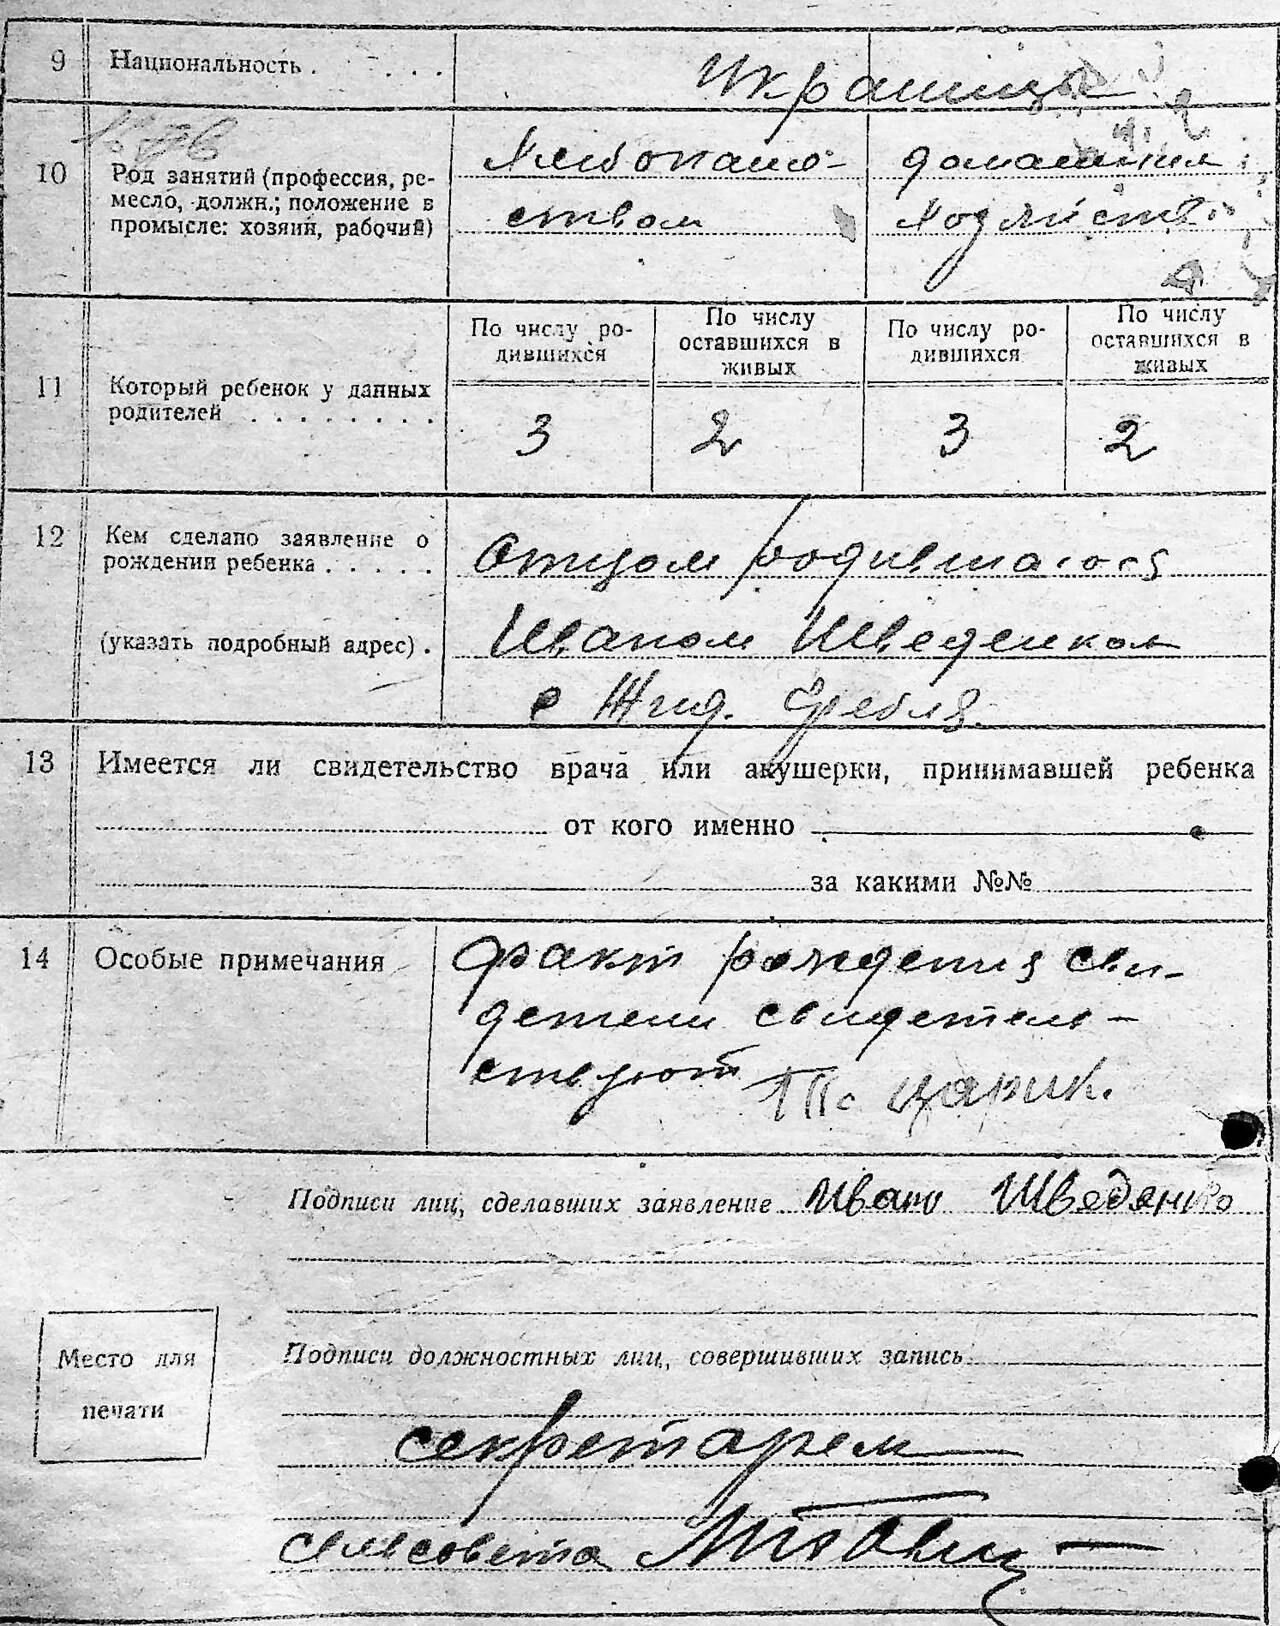 9 Национальность . . . . Украинцы
10 Род занятий (профессия, ре-
месло, должн.; положение в
промысле: хозяин, рабочий)
Хлебопаше-
ством
домашния
11 Который ребенок у данных
родителей . . . . . . . .
По числу ро-
дившихся
По числу
оставшихся в
живых
По числу ро-
дившихся
По числу
оставшихся в
живых
3 2 3 2
12 Кем сделано заявление о
рождении ребенка . . . . .
(указать подробный адрес) .
Отцом родившагося
Иваном Шведенком
с Жид. Гребля.
13 Имеется ли свидетельство врача или акушерки, принимавшей ребенка
от кого именно
за какими №№
14 Особые примечания
факт рождения сви-
детели свидетель-
ствуют
Подписи лиц, сделавших заявление Иван Шведенко
Подписи должностных лиц, совершивших запись
Место для
печати
секретарем
сельсовета